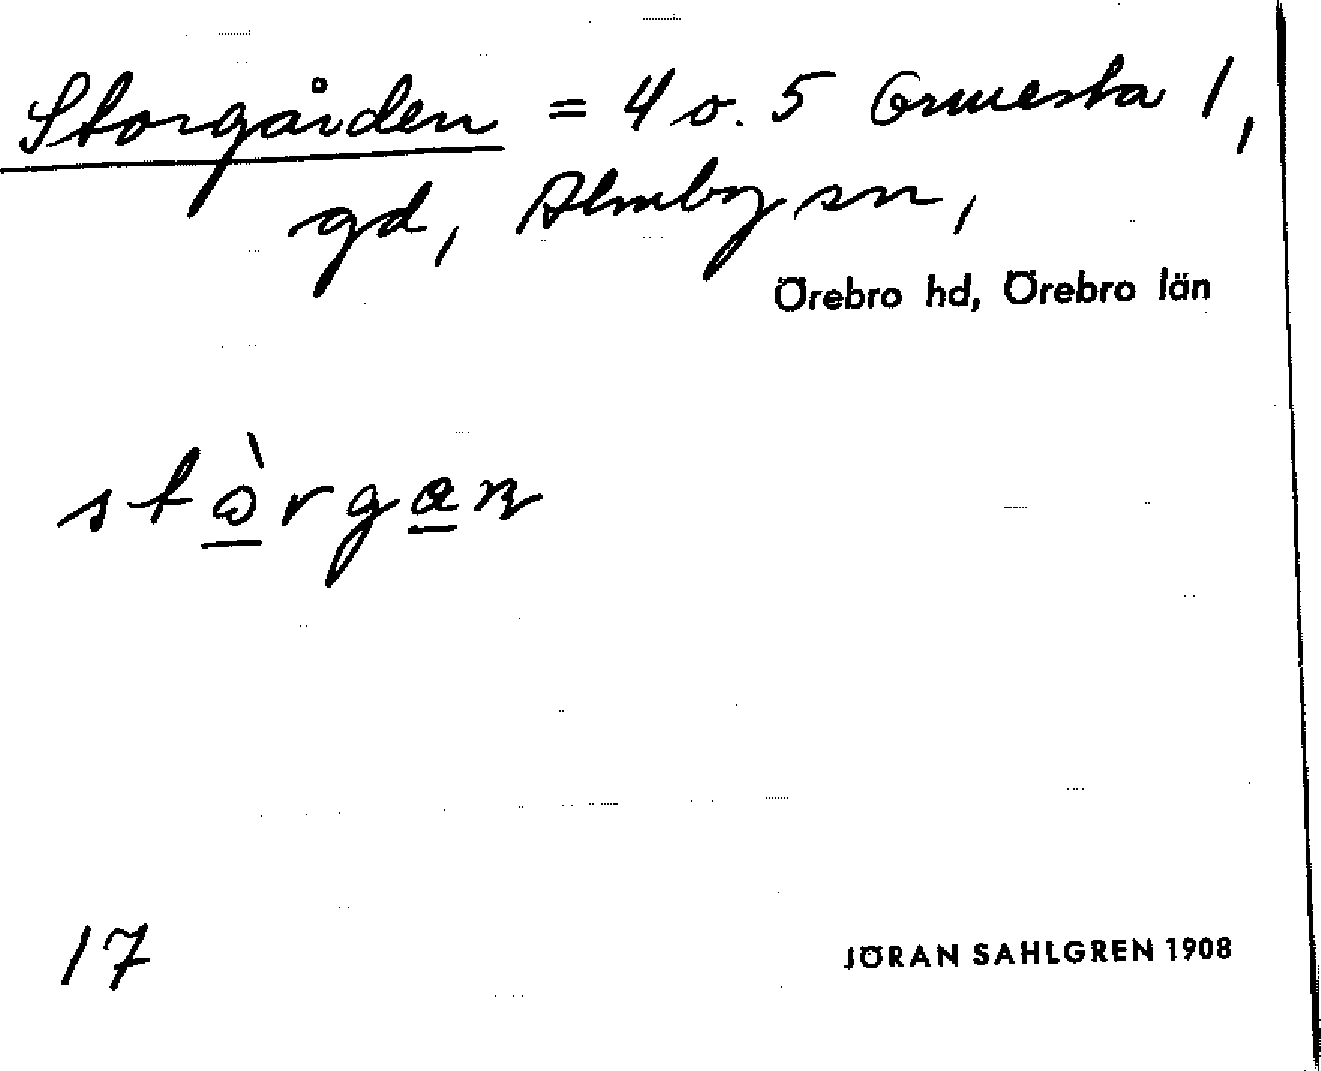 Storgården = 4 o. 5 Ormesta 1,
gd, Almby sn,
Örebro hd, Örebro län
stòrgan
17
JÖRAN SAHLGREN 1908